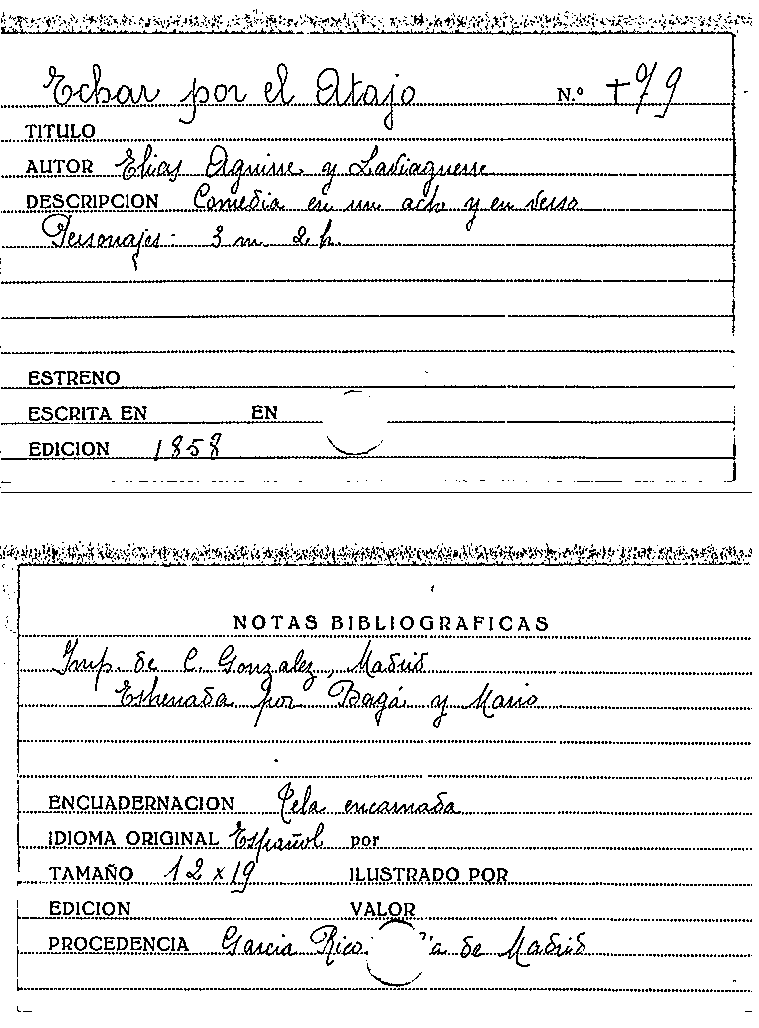 Echar por el Atajo N.º +79
TITULO
AUTOR Elias Aguirre y Laviaguerre
DESCRIPCION Comedia en un acto y en verso
Personajes: 3 m. 2 h.
ESTRENO
ESCRITA EN EN
EDICION 1858
NOTAS BIBLIOGRAFICAS
Imp. de C. Gonzalez, Madrid
Estrenada por Bagá y Mario
ENCUADERNACION Tela encarnada
IDIOMA ORIGINAL Español por
TAMAÑO 12 x 19 ILUSTRADO POR
EDICION VALOR
PROCEDENCIA Garcia Rico de Madrid